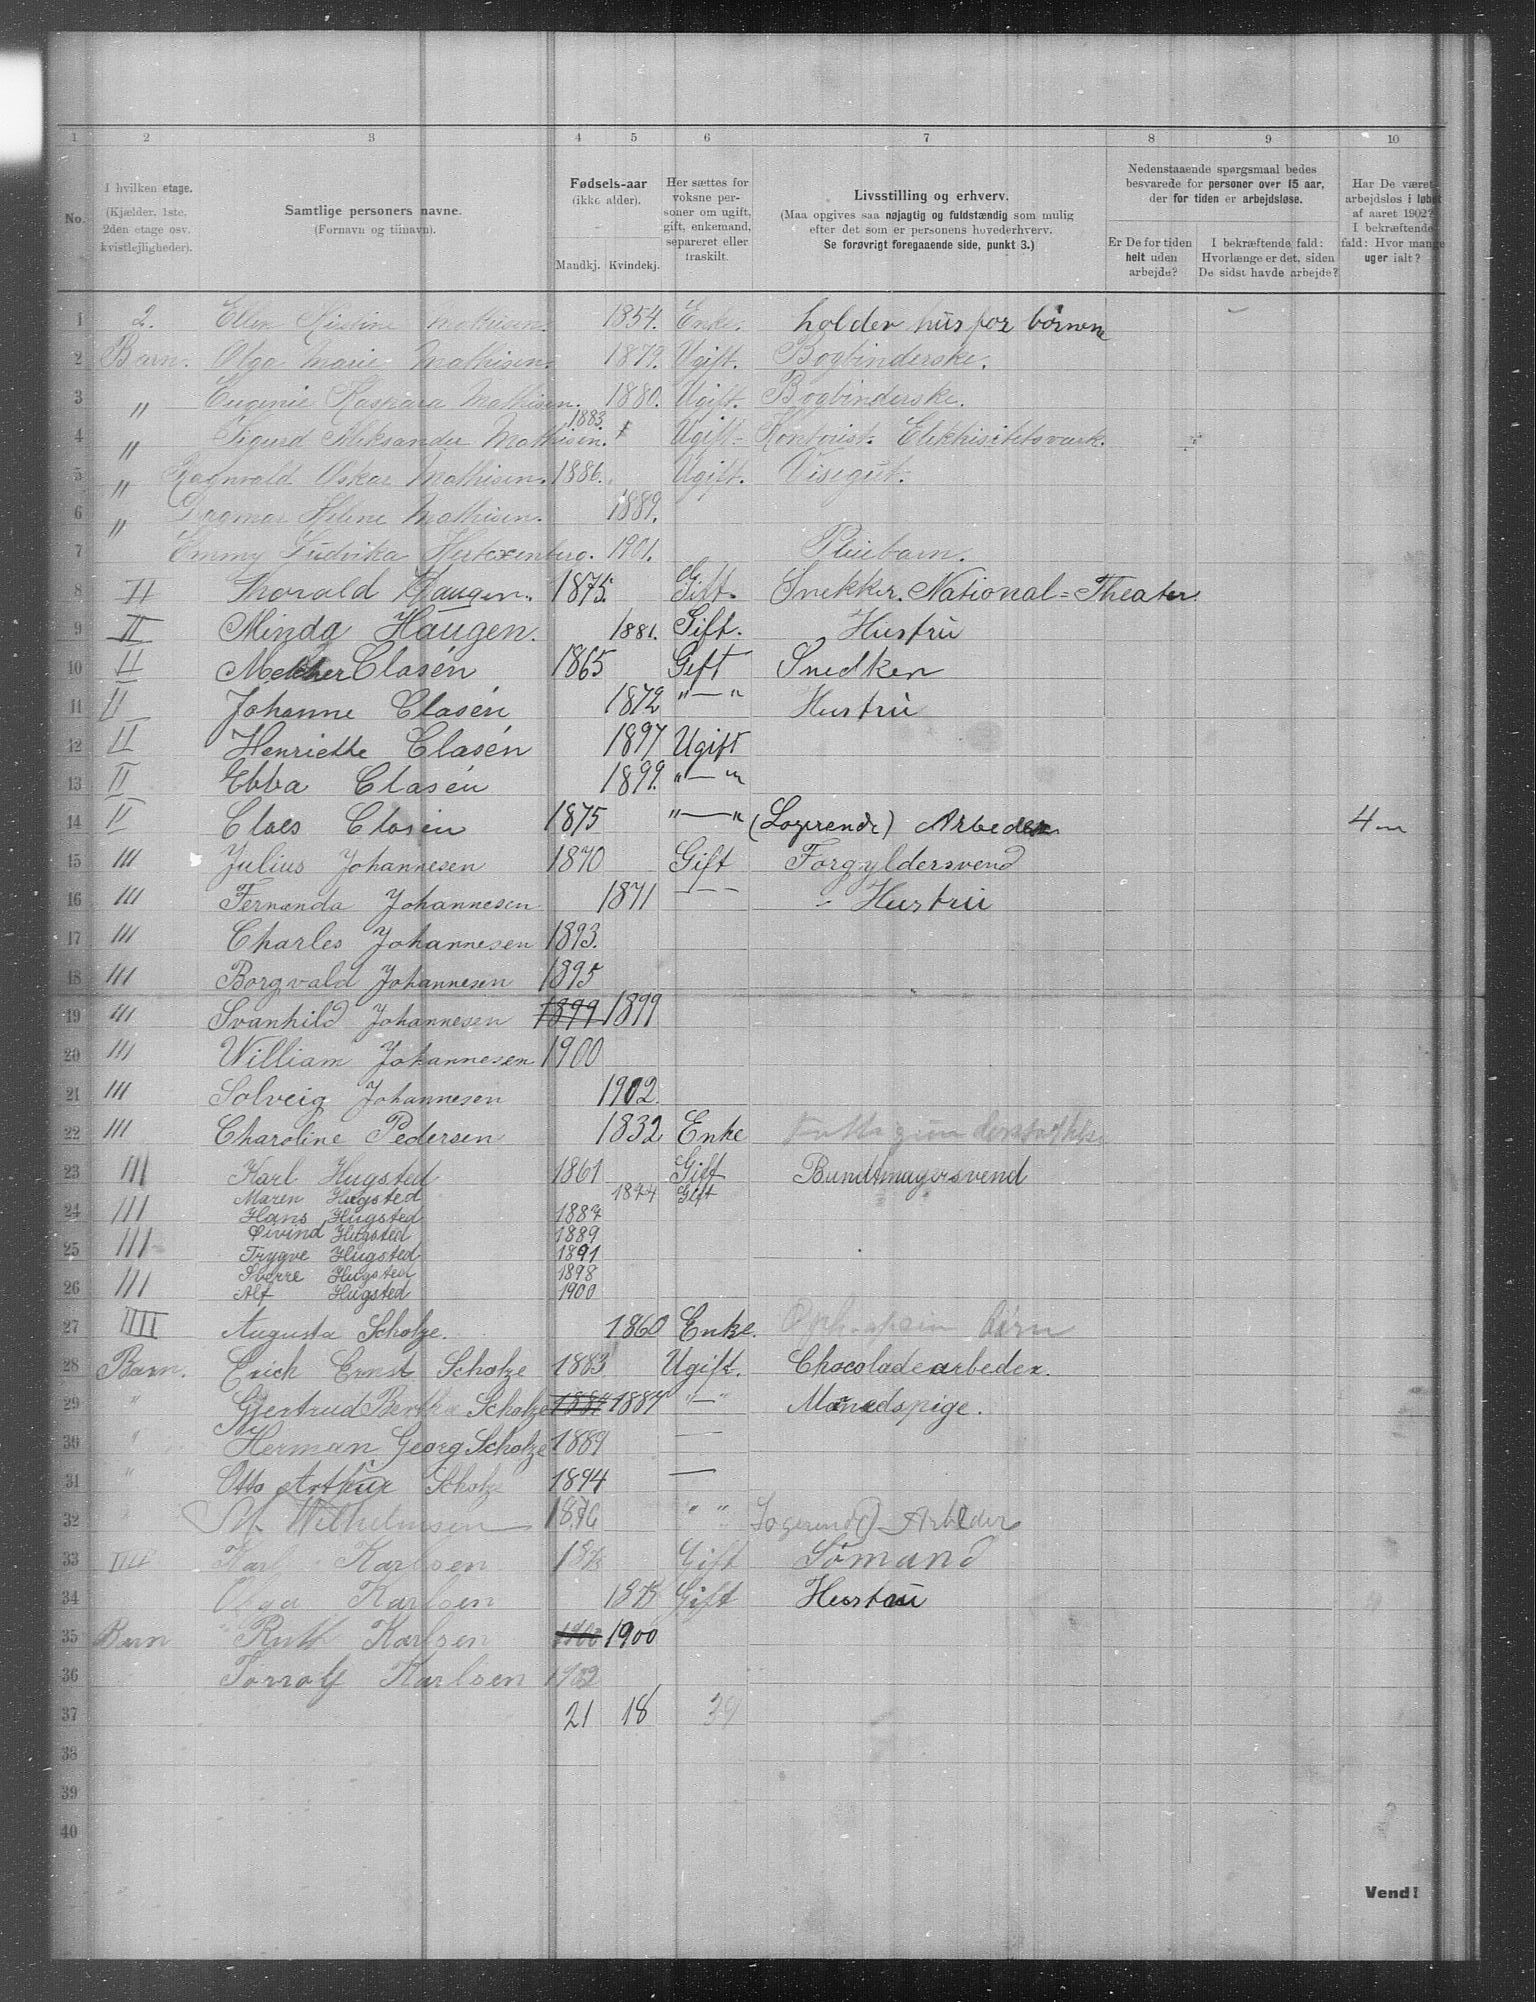 1 2 3 4 5 6 7 8 9 10
No.
I hvilken etage.
(Kjælder, 1ste, 2den etage osv. kvistlejligheder).
Samtlige personers navne.
(Fornavn og tilnavn).
Fødsels-aar
(ikke alder).
Mandkj. Kvindekj.
Her sættes for voksne personer om ugift, gift, enkemand, separeret eller fraskilt.
Livsstilling og erhverv.
(Maa opgives saa nøjagtig og fuldstændig som mulig efter det som er personens hovederhverv.
Se forøvrigt foregaaende side, punkt 3.)
Nedenstaaende spørgsmaal bedes besvarede for personer over 15 aar, der for tiden er arbejdsløse.
Er De for tiden helt uden arbejde?
I bekræftende fald: Hvorlænge er det, siden De sidst havde arbejde?
Har De været arbejdsløs i løbet af aaret 1902? I bekræftende fald: Hvor mange uger ialt?
1 2. Ellen Kirstine Mathisen. 1854. Enke. holder hus for börnene
2 Barn. Olga Marie Mathisen. 1879. Ugift. Bogbinderske.
3 " Eugenie Kaspara Mathisen. 1880. Ugift. Bogbinderske.
4 " Sigurd Aleksander Mathisen. 1883. Ugift. Kontorist. Elektrisitetsværk.
5 " Ragnvald Oskar Mathisen. 1886. Ugift. Visegut.
6 " Dagmar Helene Mathisen. 1889.
7 Emmy Ludvika 1901. Pleiebarn.
8 II Thorald Haugen. 1875. Gift. Snekker. National=Theater.
9 II Minda Haugen. 1881. Gift. Hustru
10 II Melcher Clasén 1865 Gift Snedker
11 II Johanne Clasén 1872 "—" Hustru
12 II Henriette Clasén 1897 Ugift
13 II Ebba Clasén 1899. "—"
14 II Claes Clasén 1875 "—" (Logerende) Arbeder 4
15 III Julius Johannesen 1870 Gift Forgyldersvend
16 III Fernanda Johannesen 1871 — Hustru
17 III Charles Johannesen 1893.
18 III Borgvald Johannesen 1895
19 III Svanhild Johannesen 1899 1899
20 III William Johannesen 1900
21 III Solveig Johannesen 1902.
22 III Charoline Pedersen 1832 Enke
23 III Karl Hugsted 1861 Gift Bundtmagersvend
Maren Hugsted 1844 Gift
24 III Hans Hugsted 1887
Øivind Hugsted 1889
25 III Trygve Hugsted 1891
Sverre Hugsted 1898
26 III Alf Hugsted 1900
27 IIII Augusta Scholze. 1860 Enke.
28 Barn. Erick Ernst Scholze 1883 Ugift. Chocoladearbeder.
29 " Gjertrud Bertha Scholze 1887 1887 "—" Månedspige.
30 " Herman Georg Scholze 1889 —
31 " Otto Arthur Scholze 1894 —
32 " Wilhelmsen 1876 " " Logerende) Arbeder
33 IIII Karl Karlsen Gift Sömand
34 Olga Karlsen 1875 Gift Hustru
35 Barn " Ruth Karlsen 1900 1900
36 Karlsen 1902
37 21 18 39
38
39
40
Vend!